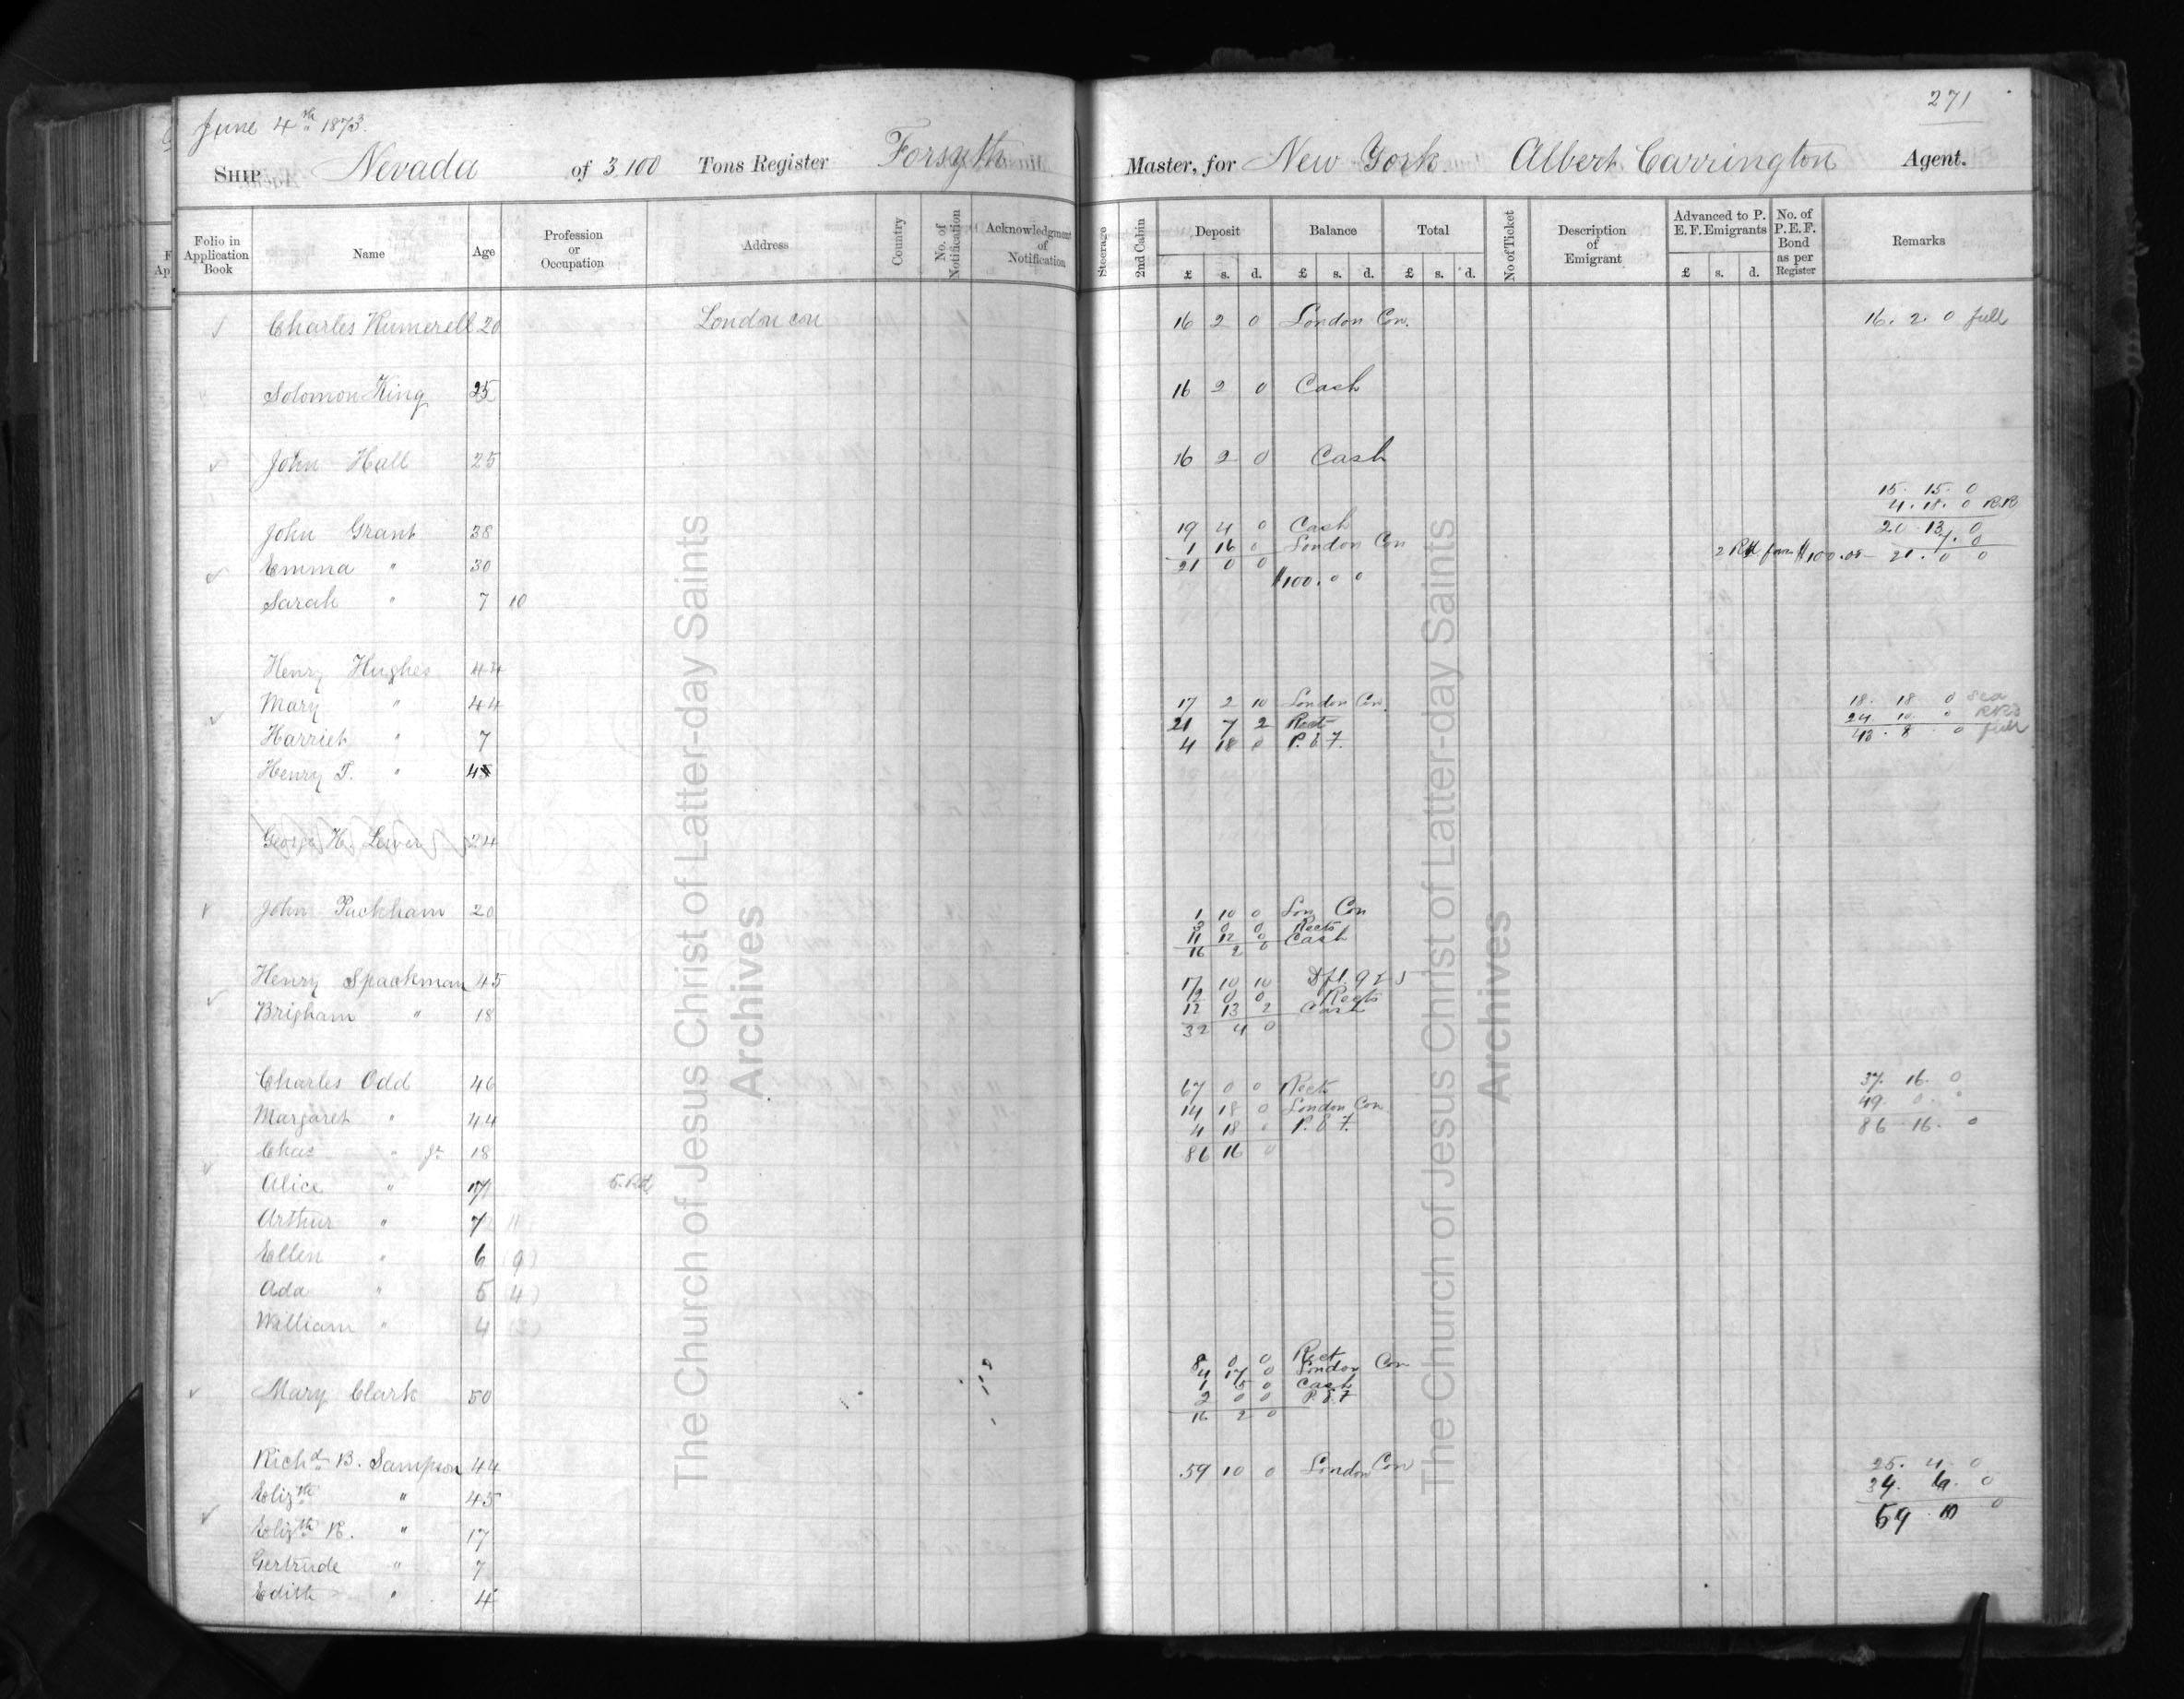 271
June 4th 1873.
SHIP Nevada of 3,100 Tons Register Forsyth Master, for New York Albert Carrington Agent.
Folio in Application Book Name Age Profession or Occupation Address Country No. of Notification Acknowledgment of Notification Steerage 2nd Cabin Deposit £ s. d. Balance £ s. d. Total £ s. d. No of Ticket Description of Emigrant Advanced to P. E. F. Emigrants £ s. d. No. of P. E. F. Bond as per Register Remarks
Charles Rumerell 20 London con 16 2 0 London Con. 16. 2. 0 full
Solomon King 25 16 2 0 Cash
John Hall 25 16 2 0 Cash
15. 15. 0
4. 18. 0 RR
John Grant 38 19 4 0 Cash 20 13 0
1 16 0 London Con 7. 0
Emma " 30 21 0 0 $100. 0 0 2 RR $100.00 21. 0 0
Sarah " 7 10
Henry Hughes 44
Mary " 44 17 2 10 London Con. 18. 18 0 sea
21 7 2 Rect 24 10 0 RR
Harriet " 7 4 18 0 P. E F. 43. 8 0 full
Henry T. " 4
George H. Lever 24
John Packham 20 1 10 0 Lon Con
3 0 0 Rects
11 12 0 Cash
16 2 0
Henry Spackman 45 17 10 10
2 0 0 Rects
Brigham " 18 12 13 2 Cash
32 4 0
Charles Odd 46 67 0 0 Rect 37. 16. 0
Margaret " 44 14 18 0 London Con 49. 0. 0
4 18 0 P. E F. 86 16. 0
Chas " Jr 18 86 16 0
Alice " 17
Arthur " 7 11
Ellen " 6 (9)
Ada " 5 (4)
William " 4 (3)
8 0 0 Rect
4 17 0 London Con
Mary Clark 50 1 5 0 Cash
2 0 0 P. E. F
16 2 0
Richd B. Sampson 44 59 10 0 London Con 25. 4. 0
Elizth " 45 34. 6. 0
Elizth R. " 17 59 10 0
Gertrude " 7
Edith " 4
The Church of Jesus Christ of Latter-day Saints
Archives
The Church of Jesus Christ of Latter-day Saints
Archives